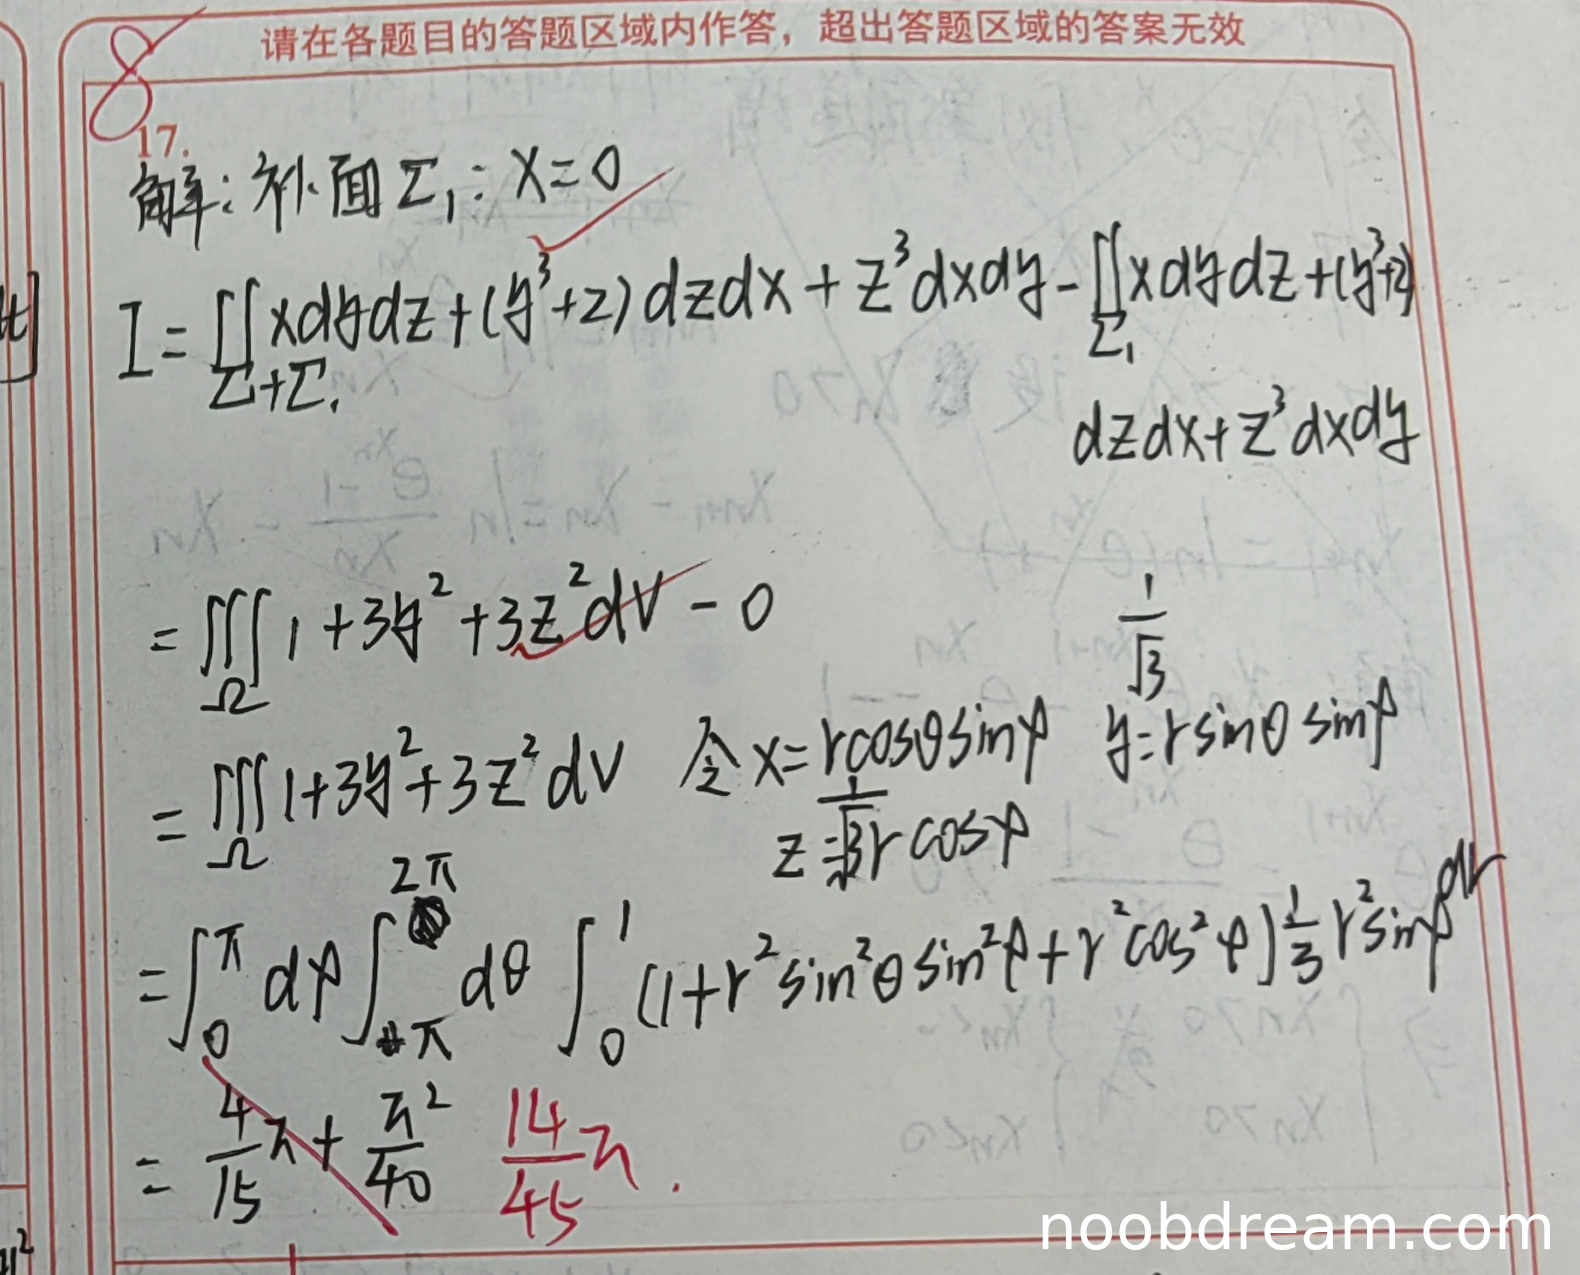 请在各题目的答题区域内作答，超出答题区域的答案无效
8
17.
解: 补面 Σ₁: x=0
I = ∬_{Σ+Σ₁} xdydz+(y³+2)dzdx+z³dxdy-∬_{Σ₁} xdydz+(y³+2)
dzdx+z³dxdy
= ∭_Ω 1+3y²+3z²dV-0
1/√3
= ∭_Ω 1+3y²+3z²dV 令x=rcosθsinφ y=rsinθsinφ
z=1/√3 r cosφ
=∫₀^π dφ ∫_π^{2π} dθ ∫₀¹ (1+r²sin²θsin²φ+r²cos²φ) 1/3 r²sinφ dr
= 4/15 π + π²/40 14/45 π.
noobdream.com